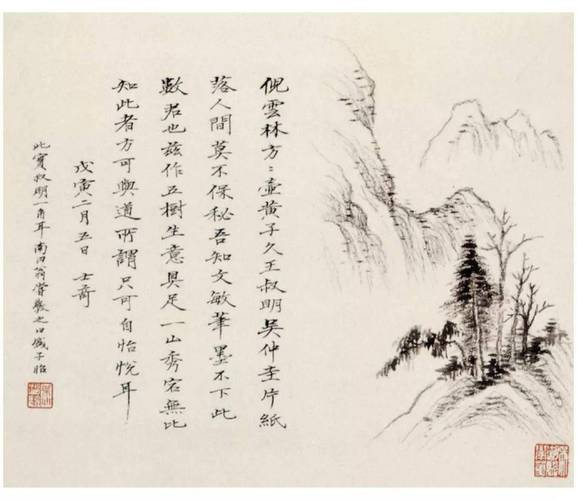 倪雲林方〻壺黃子久王叔明吳仲圭片紙
落人間莫不保秘吾知文敏筆墨不下此
數君也茲作五樹生意具足一山秀宕無比
知此者方可與道所謂只可自怡悅耳
戊寅二月五日 士奇
此實叔明一角耳南田翁